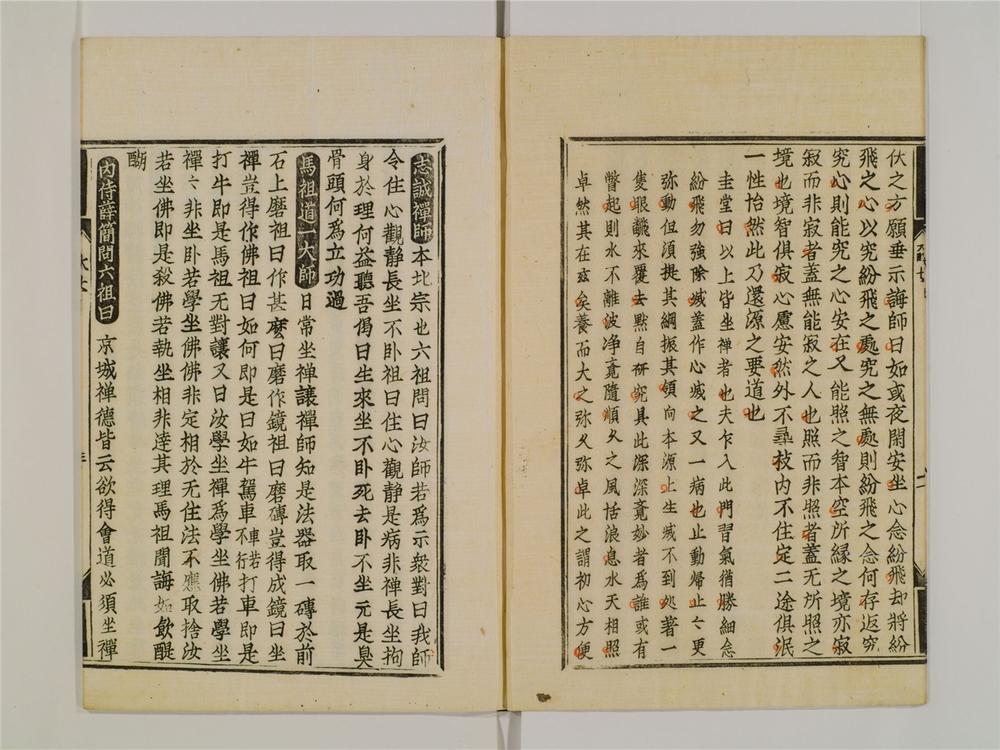 伏之方願垂示誨師曰如或夜閑安坐心念紛飛却將紛
飛之心以究紛飛之處究之無處則紛飛之念何存返究
究心則能究之心安在又能照之智本空所緣之境亦寂
寂而非寂者蓋無能寂之人也照而非照者蓋无所照之
境也境智俱寂心慮安然外不尋枝内不住定二途俱泯
一性怡然此乃還源之要道也
圭堂曰以上皆坐禪者也夫乍入此門習氣猶勝細念
紛飛勿強除滅蓋作心滅之又一病也止動歸止〻更
弥動但須提其綱振其領向本源上生滅不到処著一
隻眼覷來覆去默自研究具此深深竟妙者為誰或有
瞥起則水不離波净竟隨順久之風恬浪息水天相照
卓然其在玆矣養而大之弥久弥卓此之謂初心方便
志誠禪師本北宗也六祖問曰汝師若為示衆對曰我師
令住心觀静長坐不卧祖曰住心觀静是病非禪長坐拘
身於理何益聽吾偈曰生來坐不卧死去卧不坐元是臭
骨頭何為立功過
馬祖道一大師日常坐禪讓禪師知是法器取一磚於前
石上磨祖曰作甚麽曰磨作鏡祖曰磨磚豈得成鏡曰坐
禪豈得作佛祖曰如何即是曰如牛駕車車若不行打車即是
打牛即是馬祖无對讓又曰汝學坐禪為學坐佛若學坐
禪〻非坐卧若學坐佛佛非定相於无住法不應取捨汝
若坐佛即是殺佛若執坐相非達其理馬祖聞誨如飲醍
醐
内侍薛簡問六祖曰京城禅德皆云欲得會道必須坐禪